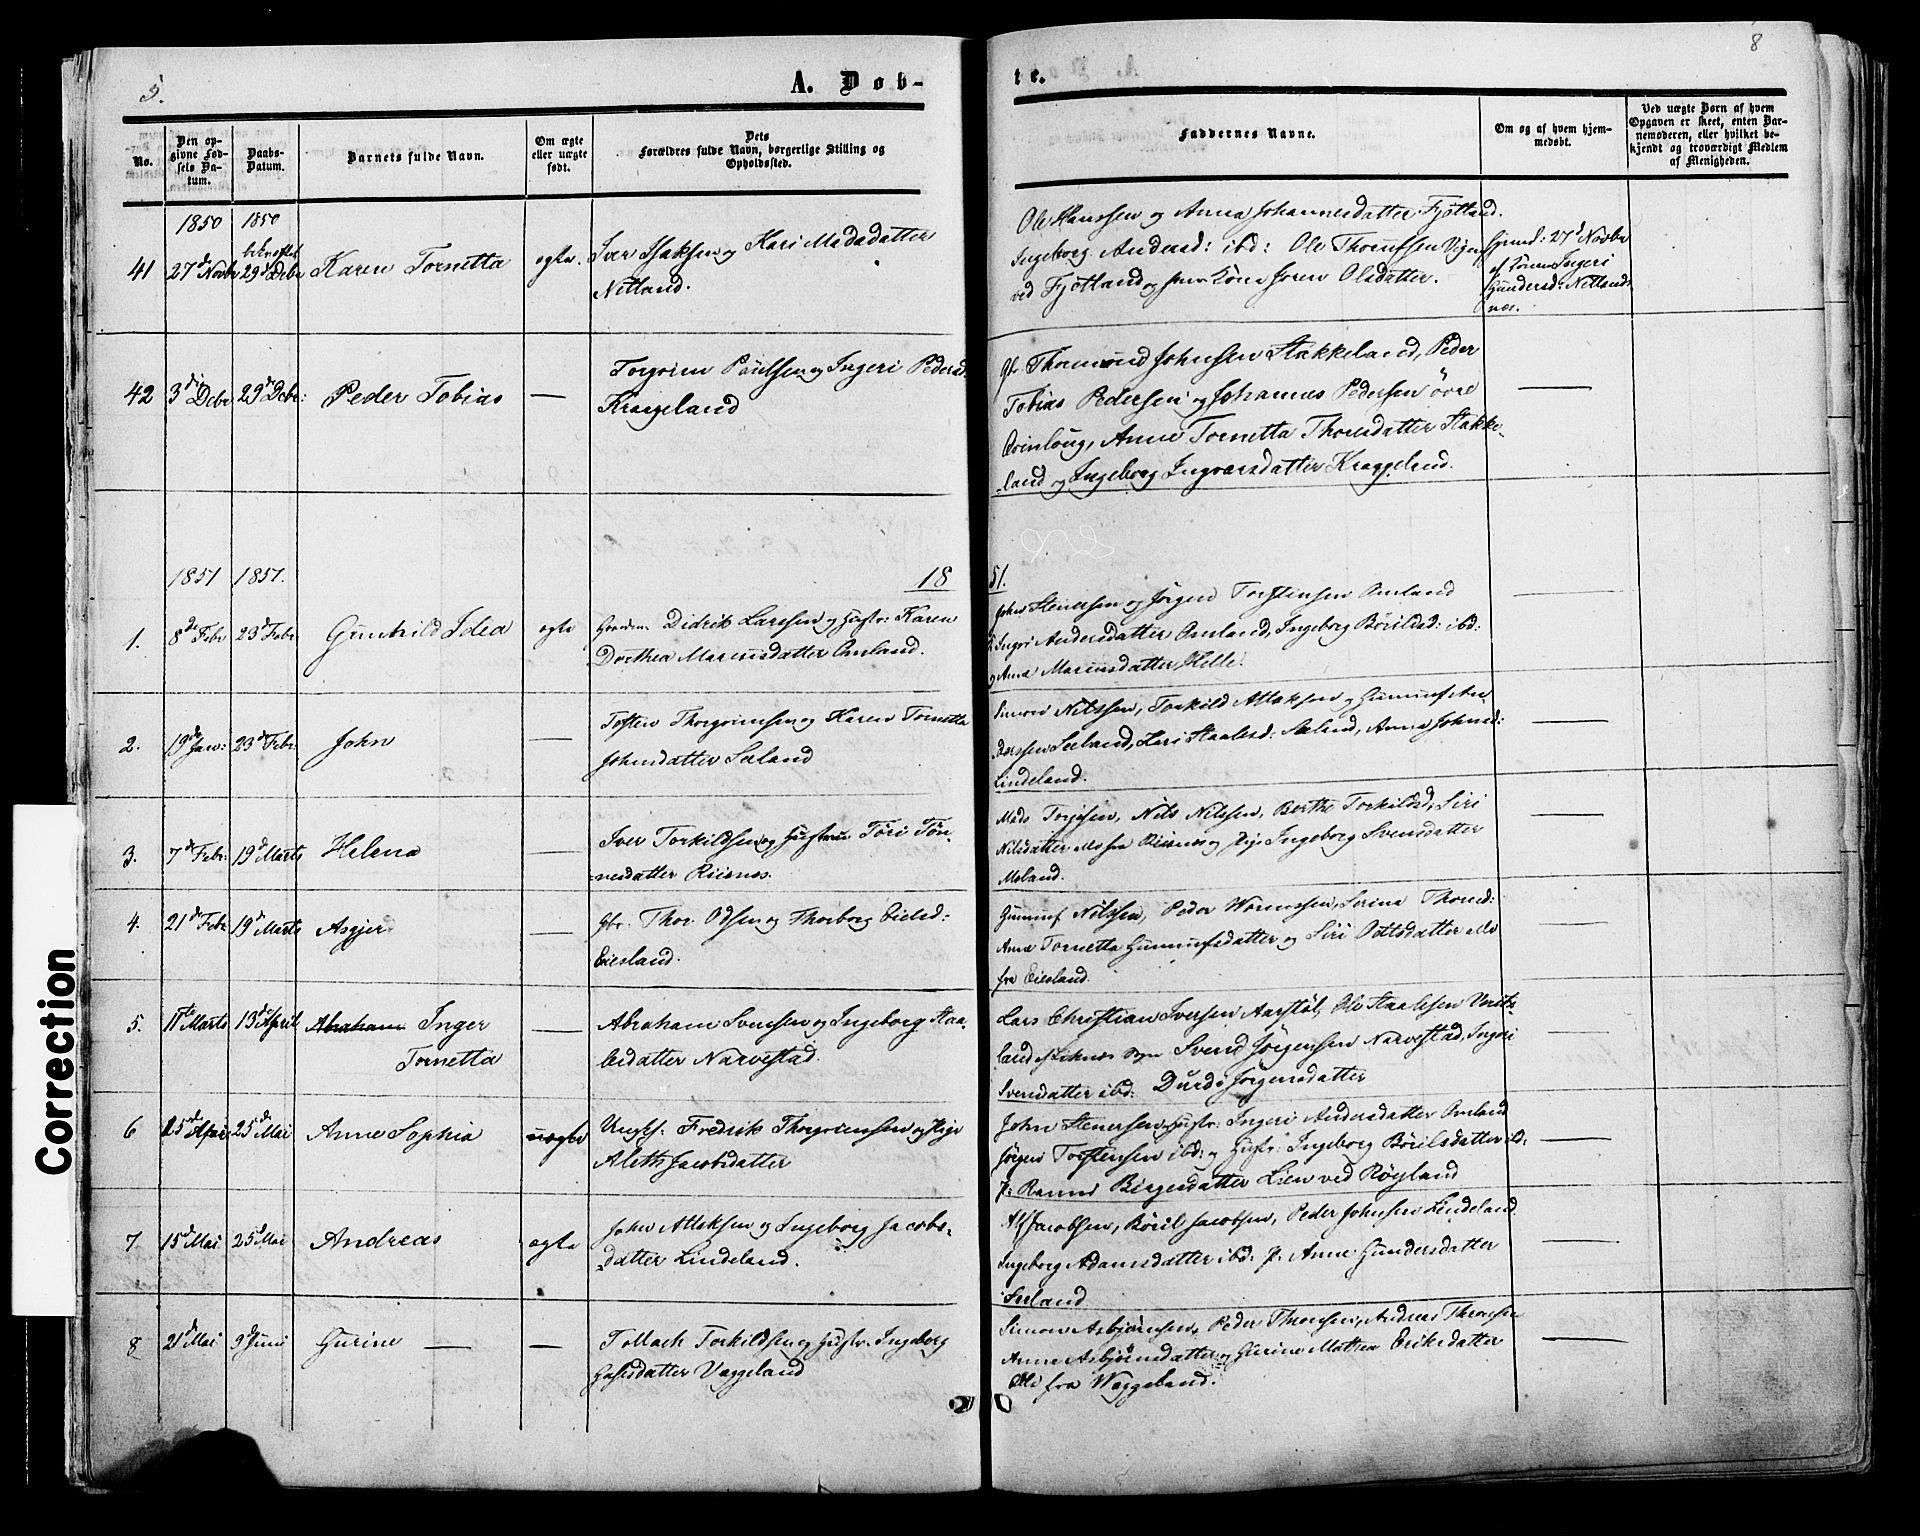 5.
A. Døb-
te.
8
No.
Den op-
givne Fød-
sels Da-
tum.
Daabs-
Datum.
Barnets fulde Navn.
Om ægte
eller uægte
født.
Dets
Forældres fulde Navn, borgerlige Stilling og
Opholdssted.
Faddernes Navne.
Om og af hvem hjem-
medøbt.
Ved uægte Børn af hvem
Opgaven er skeet, enten Bar-
nemoderen, eller hvilket be-
kjendt og troværdigt Medlem
af Menigheden.
1850
1850
41
27de Novbr
bekræftet
29de Debr
Karen Tornetta
ægte.
Iver Isaksen og Kari Madsdatter
Netland.
Ole Hanssen og Anna Johannesdatter Fjotland.
Ingeborg Andersd: ibd: Ole
ved Fjotland og Olsdatter.
27de Novbr
af Ingeri
Gundersd: Netland
næs.
42
3die Debr
29de Debr:
Peder Tobias
—
Torgrim Poulsen og Ingeri Pedersd:
Krageland
Johnsen Stakkeland, Peder
Tobias Pedersen og Johannes Pedersen övre
Qvinloug, Anne Tornetta Thoresdatter Stakke-
land og Ingeborg Ingvarsdatter Kraggeland.
—
1851
1851.
18
51.
1.
8de Febr
23de Febr
Gunhild Idea
ægte
Didrik Larssen og Hustr: Karen
Dorthea Mariusdatter Omland.
John Stenersen og Jörgen Torstensen Omland
Ingeri Andersdatter Omland, Ingeborg Börildsd: ibd:
og Anna Mariusdatter Helle.
—
2.
19de Jan:
23de Febr:
John
—
Tosten Thorgrimsen og Karen Tornetta
Johnsdatter Seland
Simon Nilssen, Torkild Atlaksen og Gunnuf An-
derssen Seeland, Kari Staalesd: Seland, Anna Johnsd:
Lindeland.
—
3.
7de Febr:
19de Marts
Helena
—
Iver Torkildsen og Hustrue Töri Tön-
nesdatter Riisnes.
Mads Torjusen, Nils Nilssen, Berthe Torkildsd, Siri
Nilsdatter Riisnes og Pige Ingeborg Svendsdatter
Moland.
—
4.
21de Febr
19de Marts
Asgjer
—
Gbr: Thor Odsen og Thorborg Eielsd:
Eiesland.
Gunnuf Nilssen, Peder Sirina Thorsd:
Anne Tornetta Gunnufsdatter og Siri Osttsdatter alle
fra Eiesland.
—
5.
11te Marts
13de April
Abraham Inger
Tornetta
—
Abraham Svensen og Ingeborg Staa-
lesdatter Narvestad.
Lars Christian Iversen Aarstöl, Ole Staalesen
land Svend Jörgensen Narvestad, Ingeri
Svensdatter ibd: Durdi Jörgensdatter
—
6
15de April
25de Mai
Anne Sophia
uægte
Ungk: Fredrik Thorgrimsen og Pige
Aleth Jacobsdatter
John Stenersen og Hustr: Ingeri Andersdatter Omland
Jörgen Torstensen ibd: og Hustr: Ingeborg Börilsdatter ibd:
P: Ranni Birgesdatter Lien ved Röyland
—
7
15de Mai
25de Mai
Andreas
ægte
John Atlaksen og Ingeborg Jacobs-
datter Lindeland.
Alf Jacobsen, Böril Jacobsen, Peder Johnsen Lindeland.
Ingeborg Adamsdatter ibd: P: Anne Gundersdatter
Seeland
—
8
21de Mai
9de Juni
Gurine
—
Tollach Torkildsen og Hustr. Ingeborg
datter Vaggeland
Simon Asbjörnsen, Peder Thronsen, Andreas Thronsen
Anne Asbjörnsdatter og Gurine Mathea Eriksdatter
Alle fra Waggeland.
—
Correction